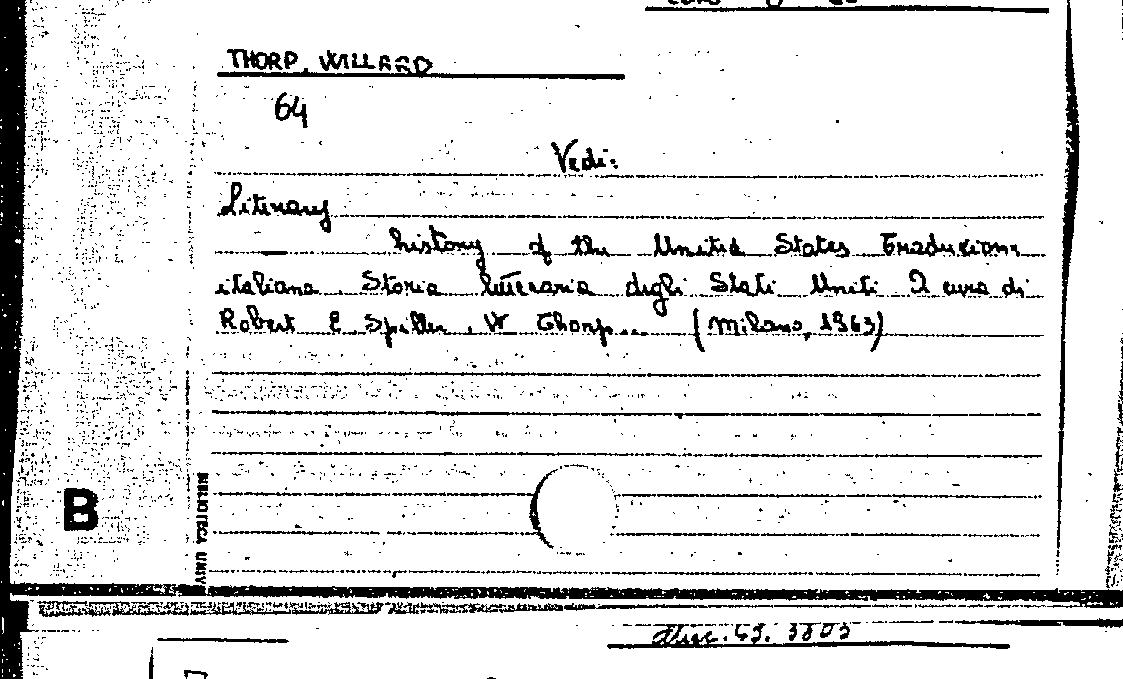 THORP, WILLARD
64
Vedi:
Literary
history of the United States Traduzione
italiana. Storia letteraria degli Stati Uniti A cura di
Robert E Spiller, W Thorp... (Milano, 1963)
B
BIBLIOTECA UNIV
Misc. 69. 3803